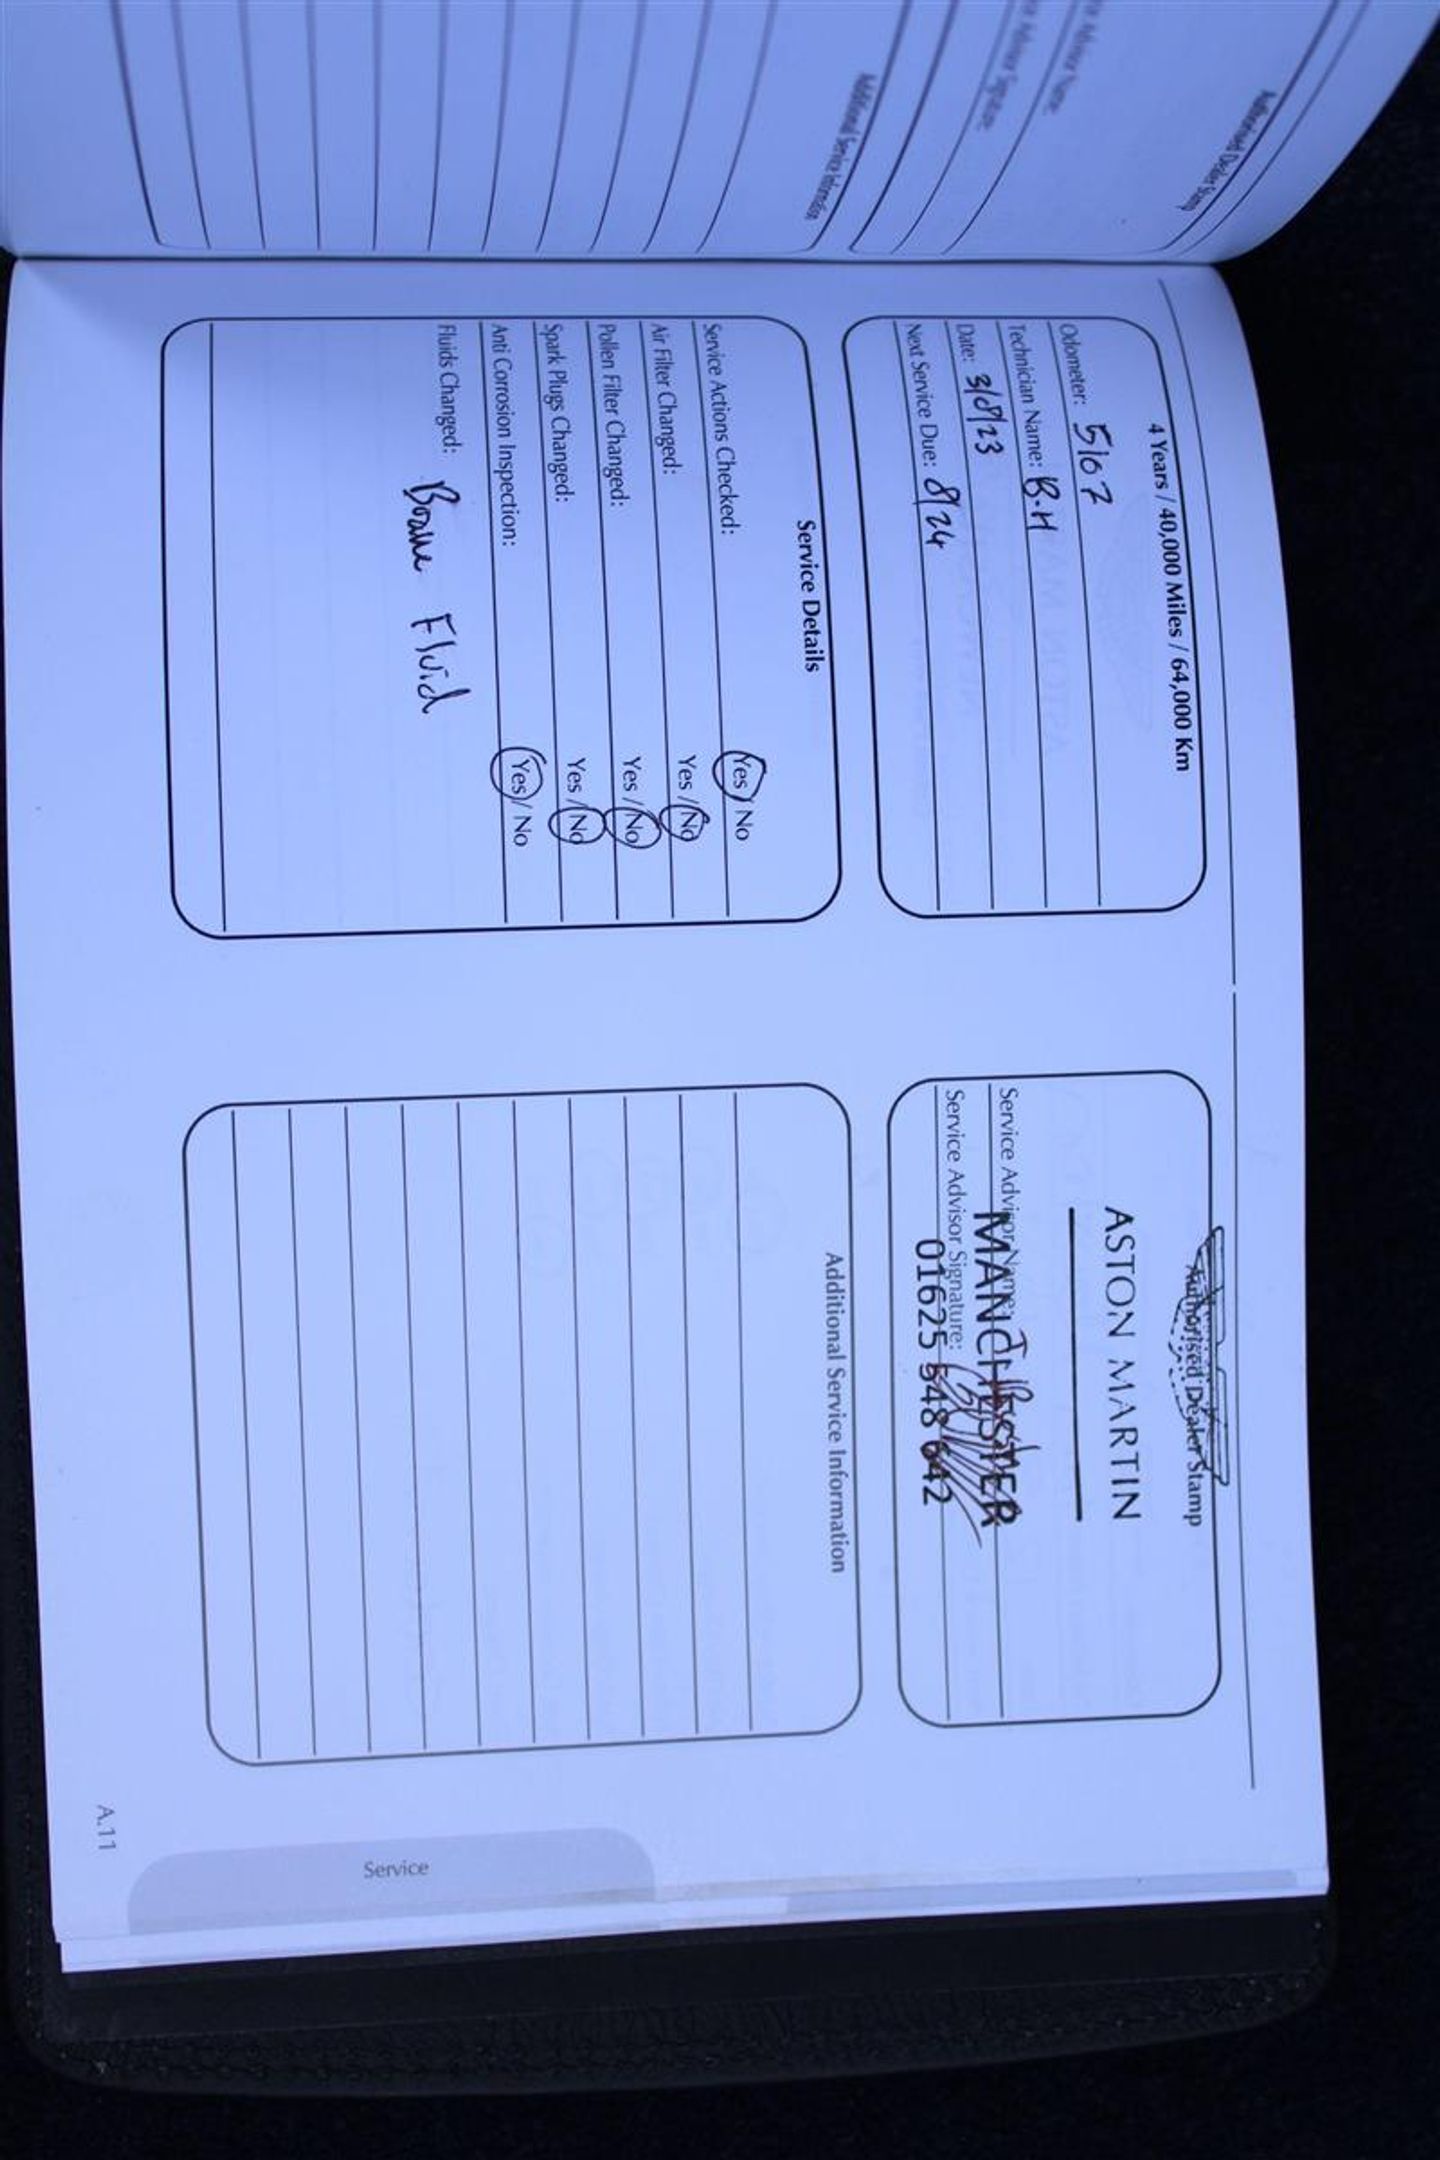 Authorised Dealer Stamp
Advisor Name:
Advisor Signature:
Additional Service Information
4 Years / 40,000 Miles / 64,000 Km
Odometer: 5107
Technician Name: B.H
Date: 3/8/23
Next Service Due: 8/24
Service Details
Service Actions Checked: Yes / No
Air Filter Changed: Yes / No
Pollen Filter Changed: Yes / No
Spark Plugs Changed: Yes / No
Anti Corrosion Inspection: Yes / No
Fluids Changed: Brake Fluid
Authorised Dealer Stamp
ASTON MARTIN
Service Advisor Name:
MANCHESTER
Service Advisor Signature:
01625 548 642
Additional Service Information
Service
A.11